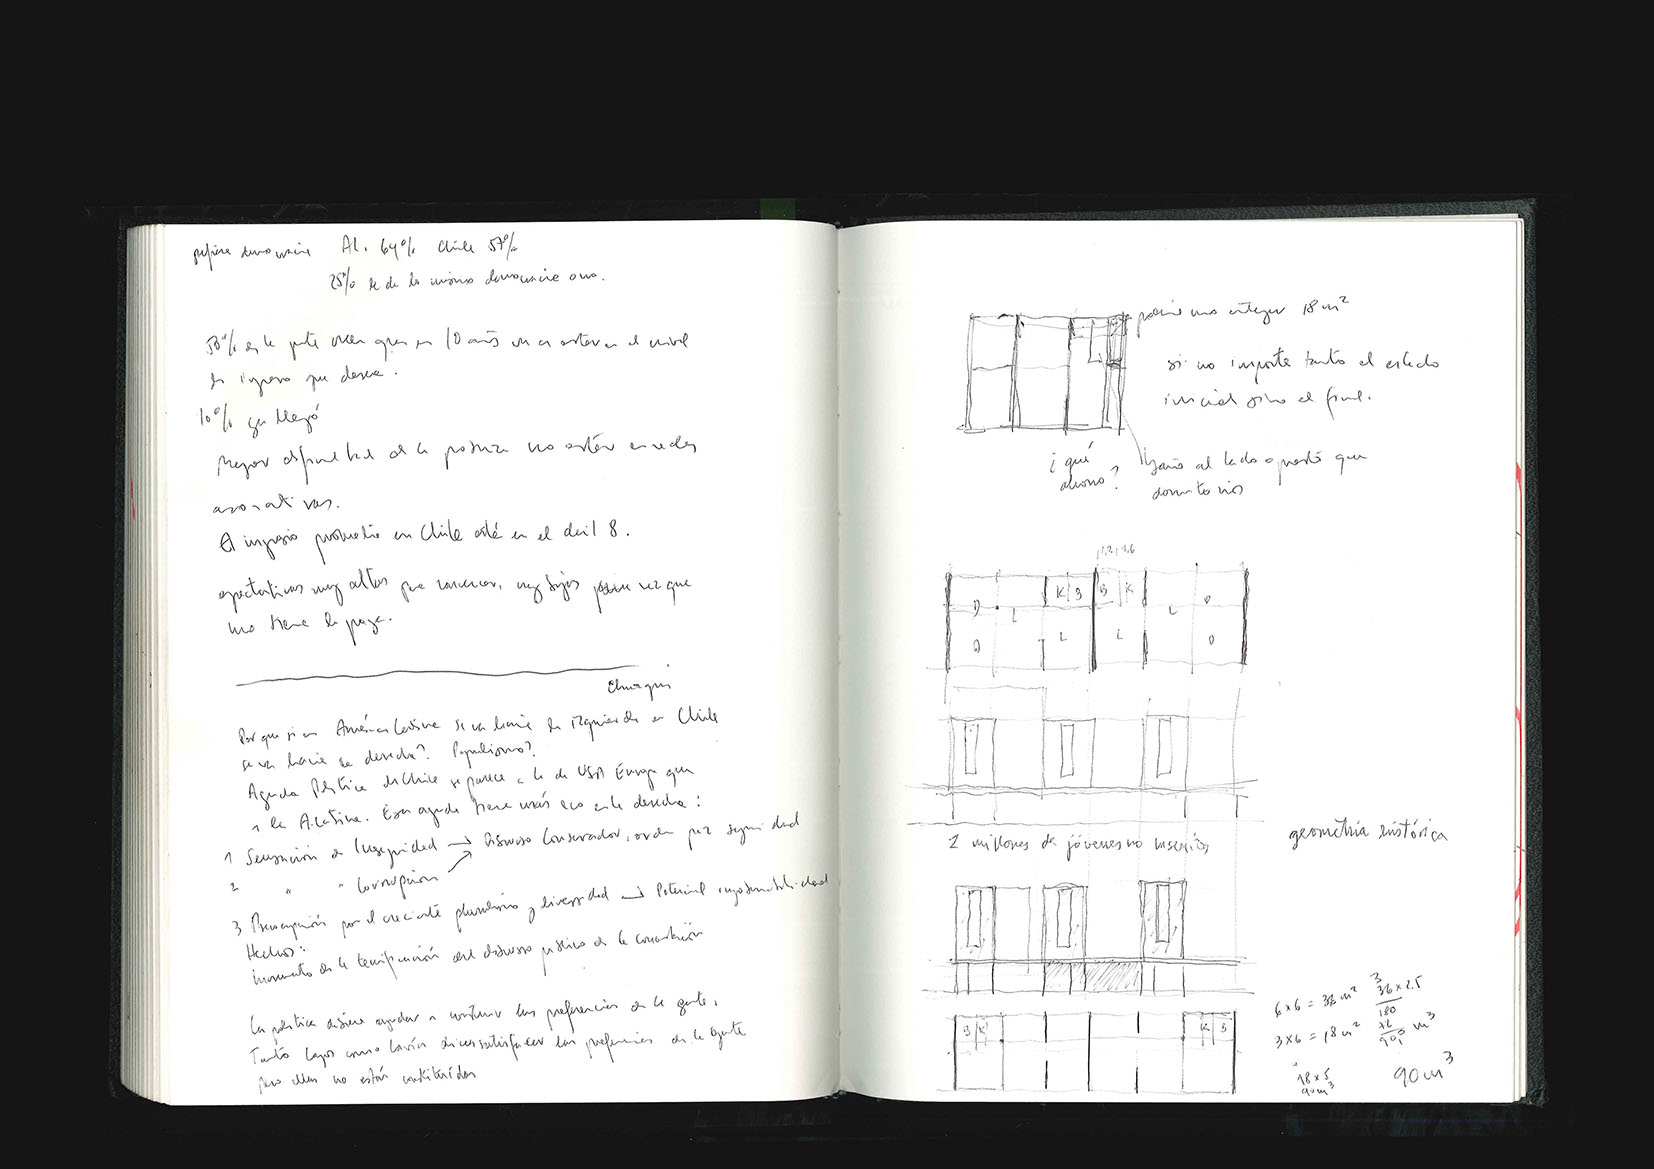 prefiere democracia AL. 64% Chile 57%
25% le da lo mismo democracia o no.
50% de la gente creen que en 10 años va a estar en el nivel
de ingreso que desea.
10% ya llegó
Mayor dificultad de la pobreza no estar en redes
asociativas.
El ingreso promedio en Chile está en el decil 8.
expectativas muy altas que vencer, muy bajos una vez que
uno tiene la pega.
Por que si en América Latina se va hacia la izquierda en Chile
se va hacia la derecha? Populismo?
Agenda Política de Chile se parece a la de USA Europa que
a la A. Latina. Esa agenda tiene más eco en la derecha:
1 Sensación de Inseguridad → Discurso Conservador, orden paz seguridad
2 " " Corrupción
3 Preocupación por el creciente pluralismo y diversidad → Potencial
Hechos:
de la tecnificación del discurso político de la concertación
La política debiera ayudar a construir las preferencias de la gente.
Tanto Lagos como Lavín dicen satisfacer las preferencias de la gente
pero ellas no están constituidas
podría uno entregar 18 m²
si no importa tanto el estado
inicial sino el final.
¿qué
ahorro?
baño al lado opuesto que
dormitorios
K B B K
D L L D
D L L D
2 millones de jóvenes no inscritos
geometría histórica
6 x 6 = 36 m²
3
36 x 2.5
180
72
90,0 m³
3 x 6 = 18 m²
18 x 5
90 m³
90 m³
B K K B